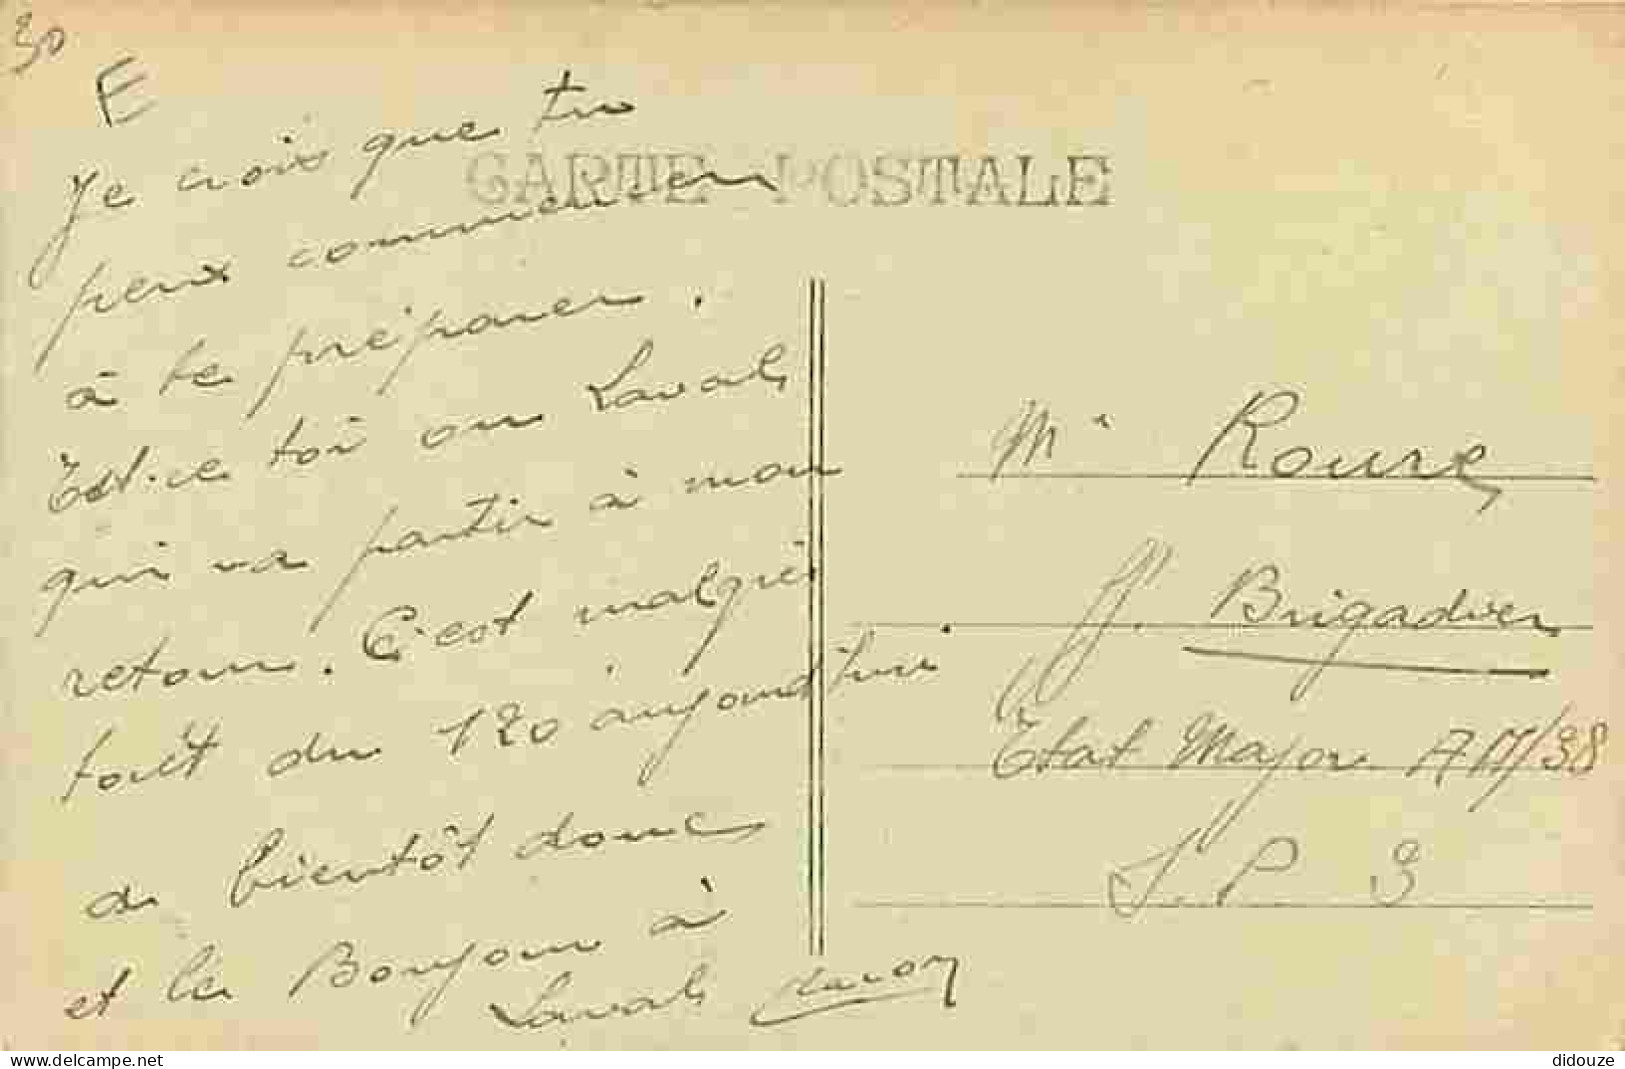 30
E
Je crois que tu
CARTE POSTALE
peux commencer
à te préparer.
Est-ce toi ou Laval
qui va partir à mon
retour. C'est malgré
tout du 120 aujourd'hui.
à bientôt donc
et le Bonjour à
Laval
Mr Roure
Brigadier
État Major AD/38
S.P 3
delcampe.net
didouze